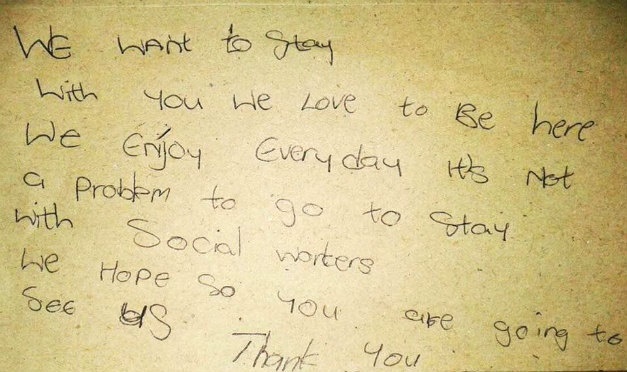 WE WANT to Stay
With you We Love to Be here
We Enjoy Everyday It's Not
a Problem to go to Stay
with Social workers
We Hope so you are going to
See US
Thank you